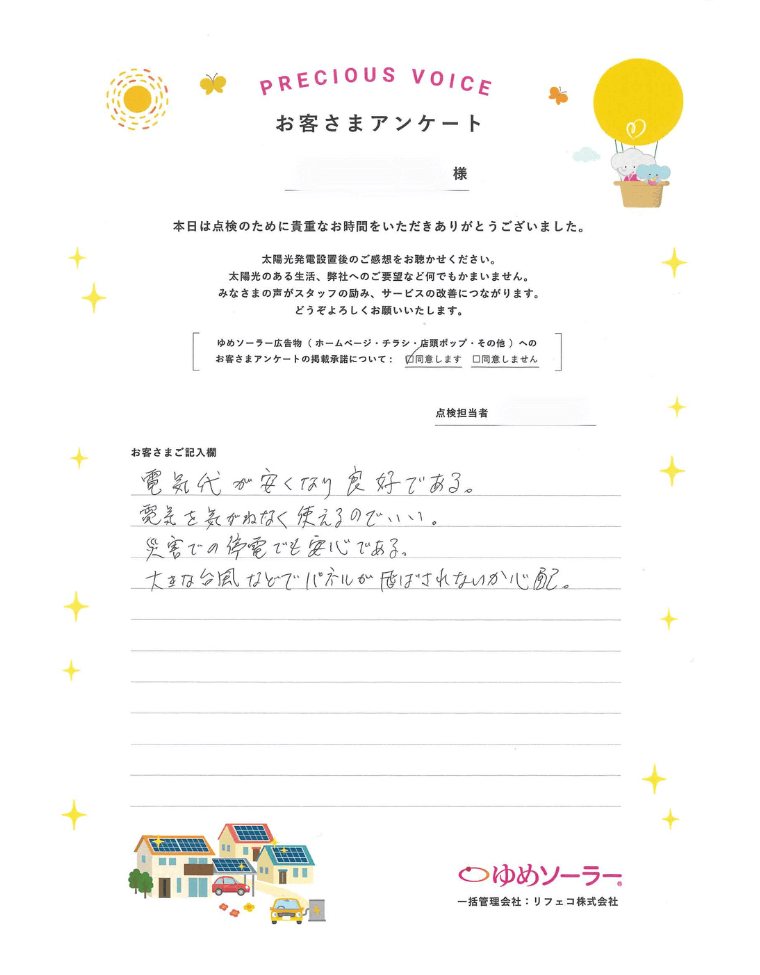 PRECIOUS VOICE
お客さまアンケート
様
本日は点検のために貴重なお時間をいただきありがとうございました。
太陽光発電設置後のご感想をお聴かせください。
太陽光のある生活、弊社へのご要望など何でもかまいません。
みなさまの声がスタッフの励み、サービスの改善につながります。
どうぞよろしくお願いいたします。
ゆめソーラー広告物（ ホームページ・チラシ・店頭ポップ・その他 ）への
お客さまアンケートの掲載承諾について： ☑同意します □同意しません
点検担当者
お客さまご記入欄
電気代が安くなり良好である。
電気を気がねなく使えるのでいい。
災害での停電でも安心である。
大きな台風などでパネルが飛ばされないか心配。
ゆめソーラー®
一括管理会社：リフェコ株式会社